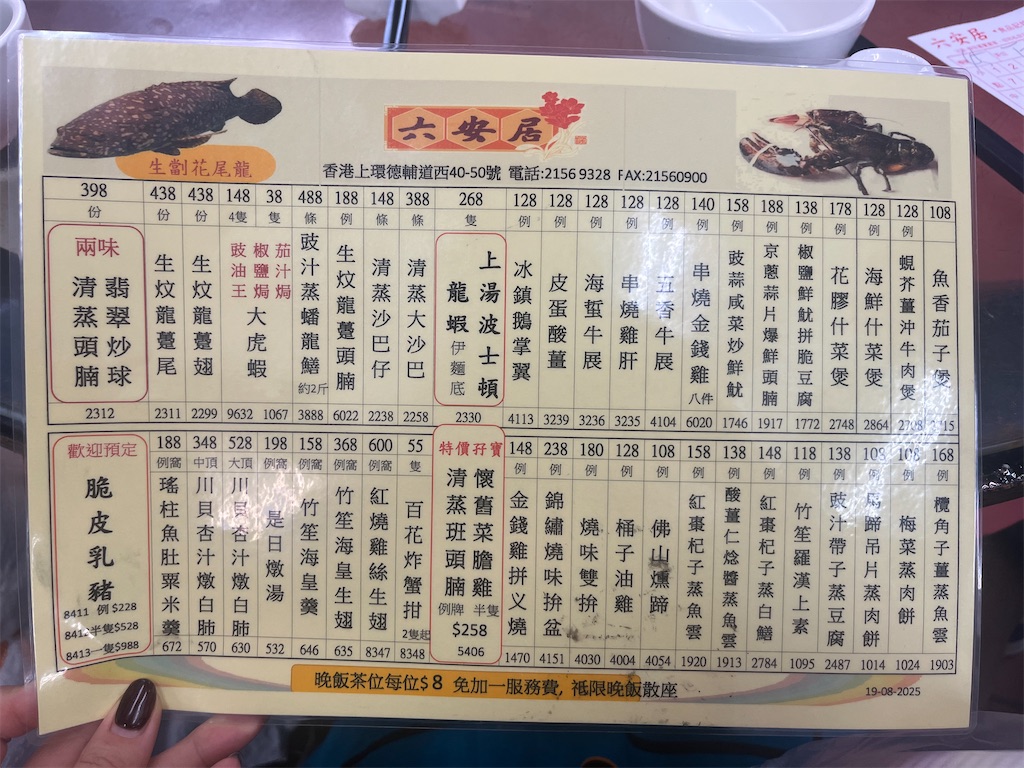 六安居
生劏花尾龍
六安居
香港上環德輔道西40-50號 電話:2156 9328 FAX:21560900
398 份 兩味 翡翠炒球 清蒸頭腩 2312
438 份 生炆龍躉尾 2311
438 份 生炆龍躉翅 2299
148 4隻 38 隻 茄汁焗 椒鹽焗 豉油王 大虎蝦 9632 1067
488 條 豉汁蒸蟠龍鱔 約2斤 3888
188 例 生炆龍躉頭腩 6022
148 條 清蒸沙巴仔 2238
388 條 清蒸大沙巴 2258
268 隻 上湯波士頓龍蝦 伊麵底 2330
128 例 冰鎮鵝掌翼 4113
128 例 皮蛋酸薑 3239
128 例 海蜇牛展 3236
128 例 串燒雞肝 3235
128 例 五香牛展 4104
140 例 串燒金錢雞 八件 6020
158 例 豉蒜咸菜炒鮮魷 1746
188 例 京蔥蒜片爆鮮頭腩 1917
138 例 椒鹽鮮魷拼脆豆腐 1772
178 例 花膠什菜煲 2748
128 例 海鮮什菜煲 2864
128 例 蜆芥薑沖牛肉煲 2708
108 魚香茄子煲
歡迎預定 脆皮乳豬
8411 例 $228
8412半隻$528
8413一隻$988
188 例窩 瑤柱魚肚粟米羹 672
348 中頂 川貝杏汁燉白肺 570
528 大頂 川貝杏汁燉白肺 630
198 例窩 是日燉湯 532
158 例窩 竹笙海皇羹 646
368 例窩 竹笙海皇生翅 635
600 例窩 紅燒雞絲生翅 8347
55 隻 百花炸蟹拑 2隻起 8348
特價孖寶 懷舊菜膽雞 半隻 清蒸班頭腩 例牌 $258 5406
148 例 金錢雞拼义燒 1470
238 例 錦繡燒味拚盆 4151
180 例 燒味雙拚 4030
128 例 桶子油雞 4004
108 例 佛山燻蹄 4054
158 例 紅棗杞子蒸魚雲 1920
138 例 酸薑仁焾醬蒸魚雲 1913
148 例 紅棗杞子蒸白鱔 2784
118 例 竹笙羅漢上素 1095
138 例 豉汁帶子蒸豆腐 2487
108 例 馬蹄吊片蒸肉餅 1014
108 例 梅菜蒸肉餅 1024
168 例 欖角子薑蒸魚雲 1903
晚飯茶位每位$8 免加一服務費, 祗限晚飯散座
19-08-2025